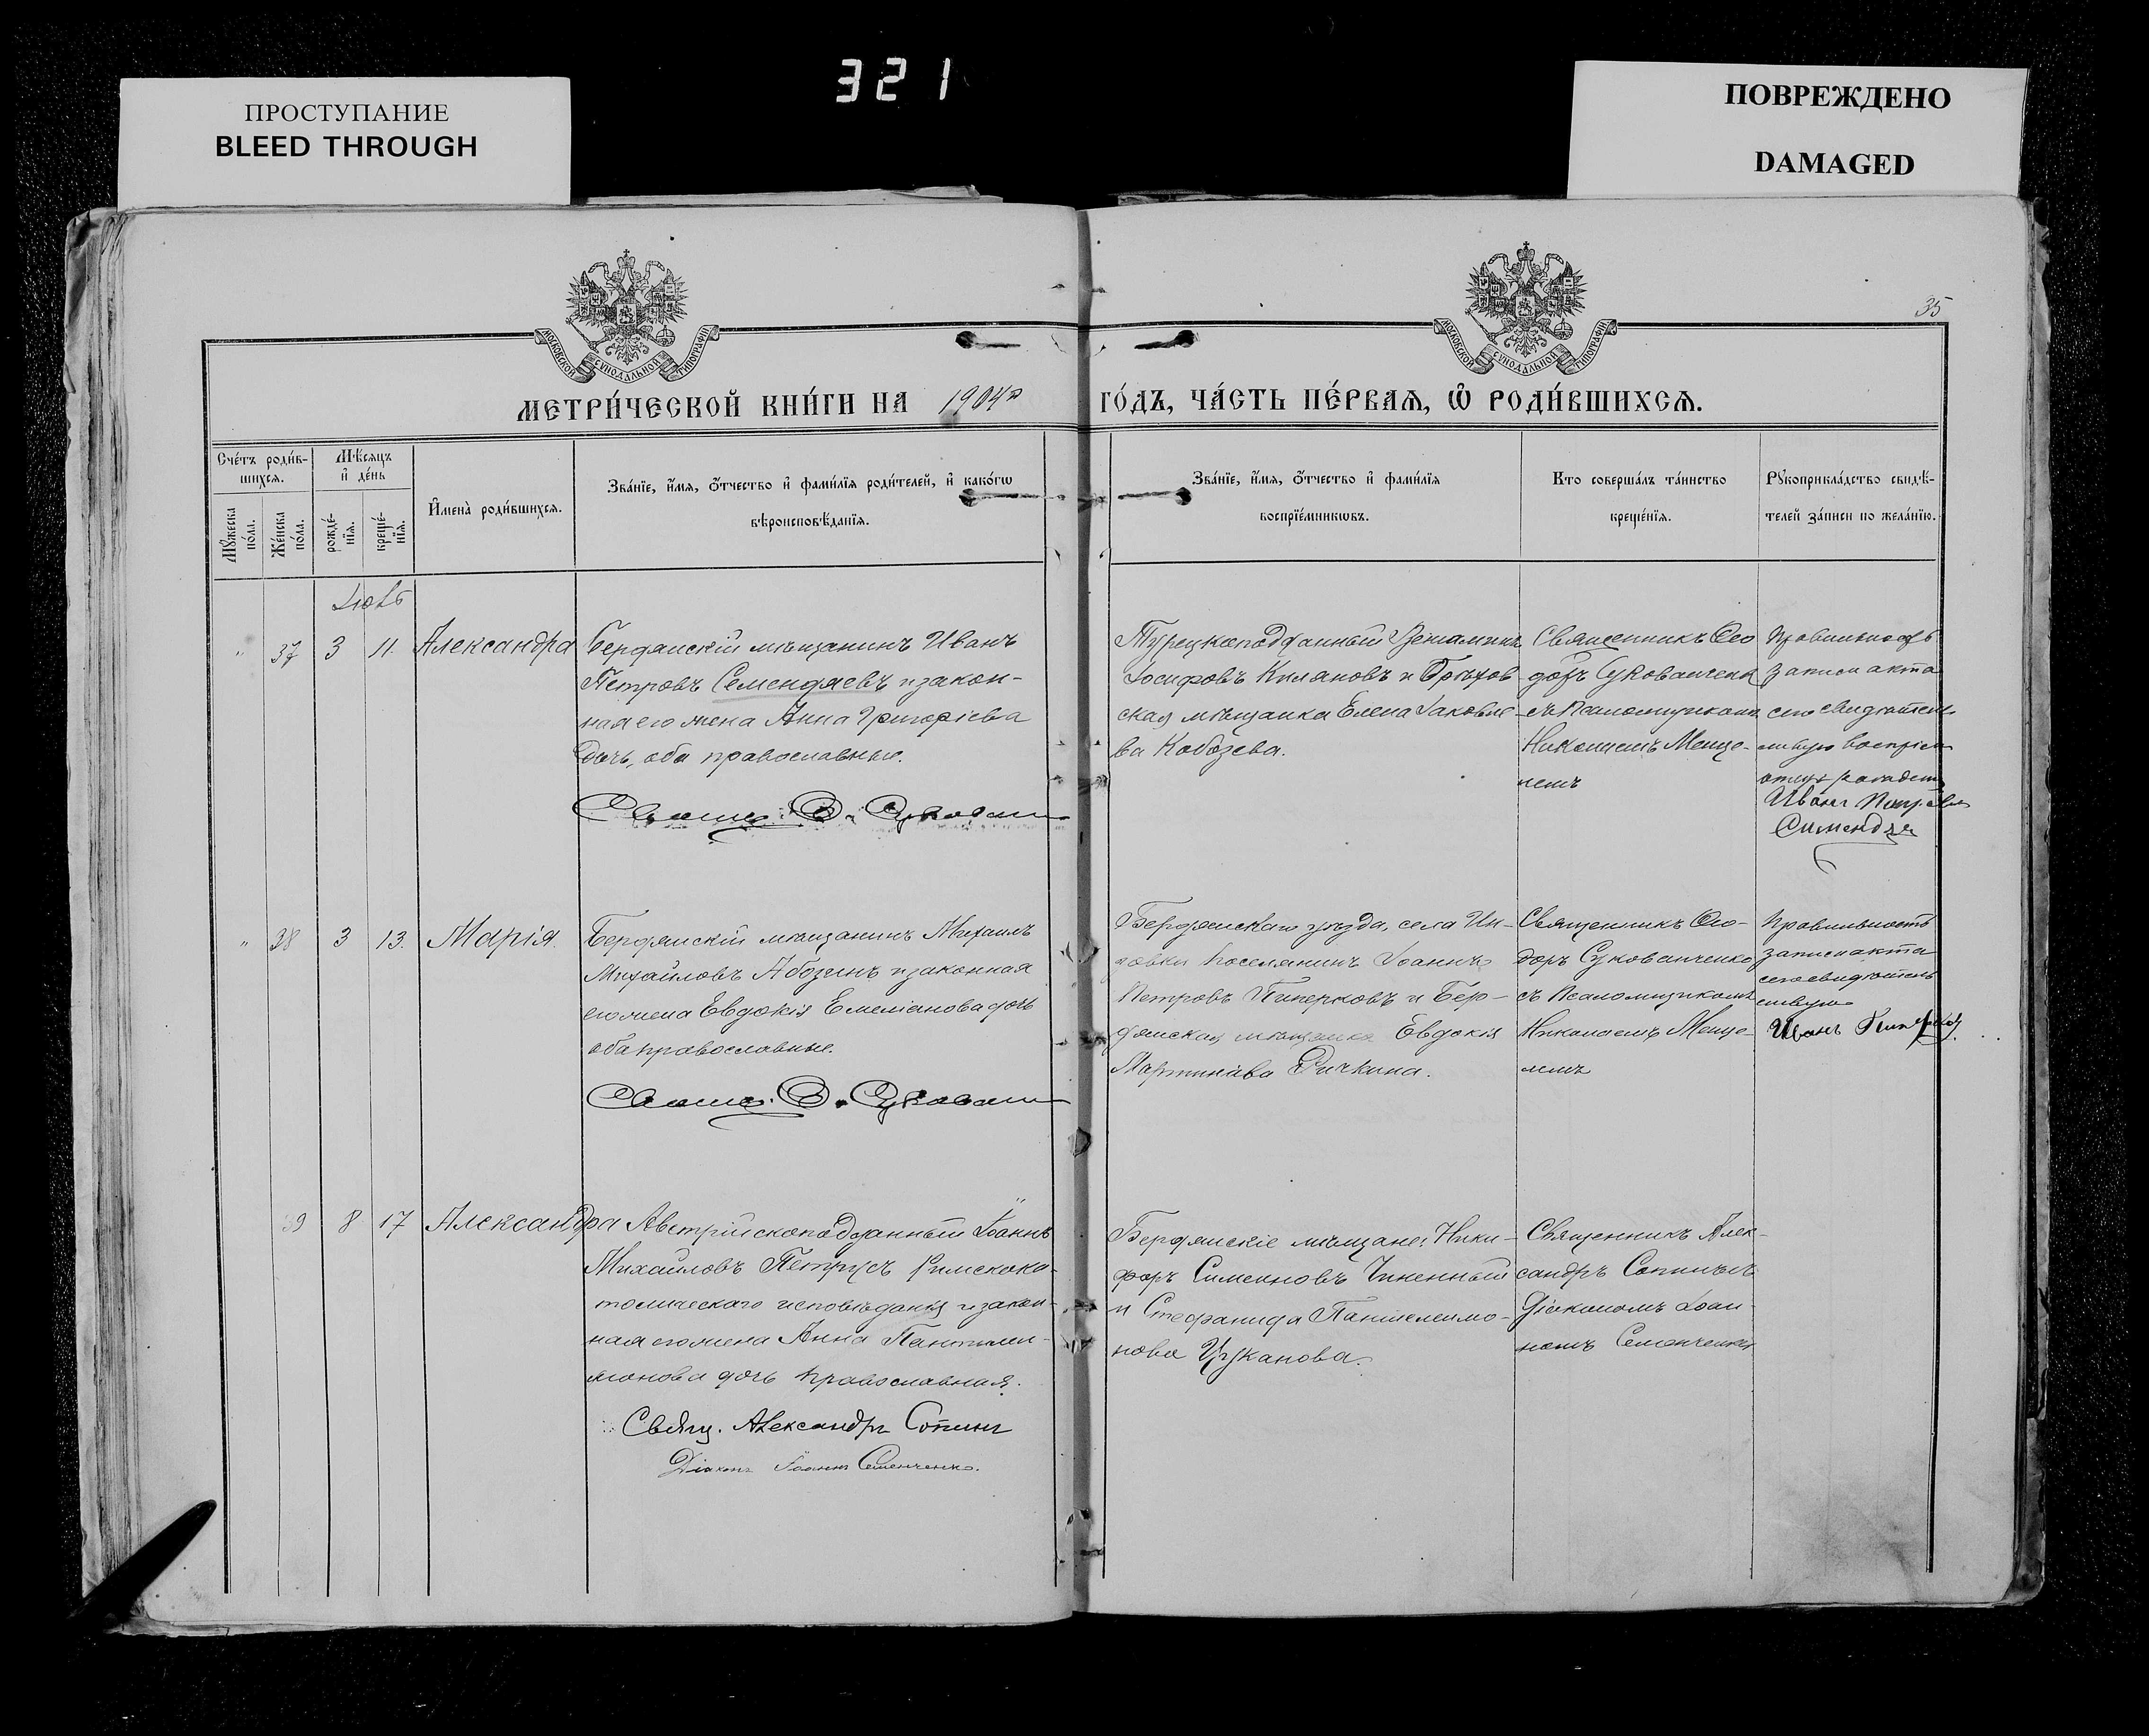 321
ПРОСТУПАНИЕ
BLEED THROUGH
ПОВРЕЖДЕНО
DAMAGED
35
МОСКОВСКОЙ СѴНОДАЛЬНОЙ ТИПОГРАФІИ
МОСКОВСКОЙ СѴНОДАЛЬНОЙ ТИПОГРАФІИ
МЕТРИ́ЧЕСКОЙ КНИ́ГИ НА 1904й ГО́ДЪ, ЧА́СТЬ ПЕ́РВАѦ, Ѽ РОДИ́ВШИХСѦ.
Сче́тъ роди́в-
шихсѧ.
Мꙋ́жеска по́ла.
Же́нска по́ла.
Мѣ́сѧцъ
и҆ де́нь
рожде́-
нїѧ.
креще́-
нїѧ.
И҆мена̀ роди́вшихсѧ.
Зва́нїе, и҆́мѧ, ѻ҆́тчество и҆ фами́лїѧ роди́телей, и҆ како́гѡ
вѣроисповѣ́данїѧ.
Зва́нїе, и҆́мѧ, ѻ҆́тчество и҆ фами́лїѧ
воспрїе́мникѡвъ.
Кто соверша́лъ та́инство
креще́нїѧ.
Рꙋкоприкла́дство свидѣ́-
телей за́писи по жела́нїю.
Іюль
" 37 3 11. Александра
Бердянскій мѣщанинъ Иванъ
Петровъ Семендяевъ и закон-
ная его жена Анна Григоріева
дочь, оба православные.
Свящ. Ѳ. Сукован
Турецкоподданный Веніаминъ
Іосифовъ Киляновъ и Орѣхов
ская мѣщанка Елена Іаковле-
ва Кобозева.
Священникъ Ѳео
доръ Сукованченко
съ Псаломщикомъ
Николаемъ Меще-
немъ
Правильность
записи акта
сего свидѣтель
Иванъ Петровъ
Симендяе
" 38 3 13. Марія.
Бердянскій мѣщанинъ Михаилъ
Михайловъ Абозинъ и законная
его жена Евдокія Емеліанова дочь
оба православные.
Свящ. Ѳ. Сукован
Бердянскаго уѣзда, села Ин-
зовки поселянинъ Іоаннъ
Петровъ Пиперковъ и Бер-
дянская мѣщанка Евдокія
Мартинова Дичкина.
Священникъ Ѳео-
доръ Сукованченко
съ Псаломщикомъ
Николаемъ Меще-
немъ
Правильность
записи акта
сего свидѣтель
ствую
Иванъ Пиперков
39 8 17 Александра
Австрійскоподданный Іоаннъ
Михайловъ Петрусъ Римскока-
толическаго исповѣданія и закон-
ная его жена Анна Пантелеи-
монова дочь православная.
Свящ. Александръ Сопинъ
Діаконъ Іоаннъ Семенченко.
Бердянскіе мѣщане: Ники-
форъ Симеоновъ Чиненный
и Стефанида Пантелеимо-
нова Цуканова.
Священникъ Алек-
сандръ Сопинъ съ
Діакономъ Іоан-
номъ Семенченко